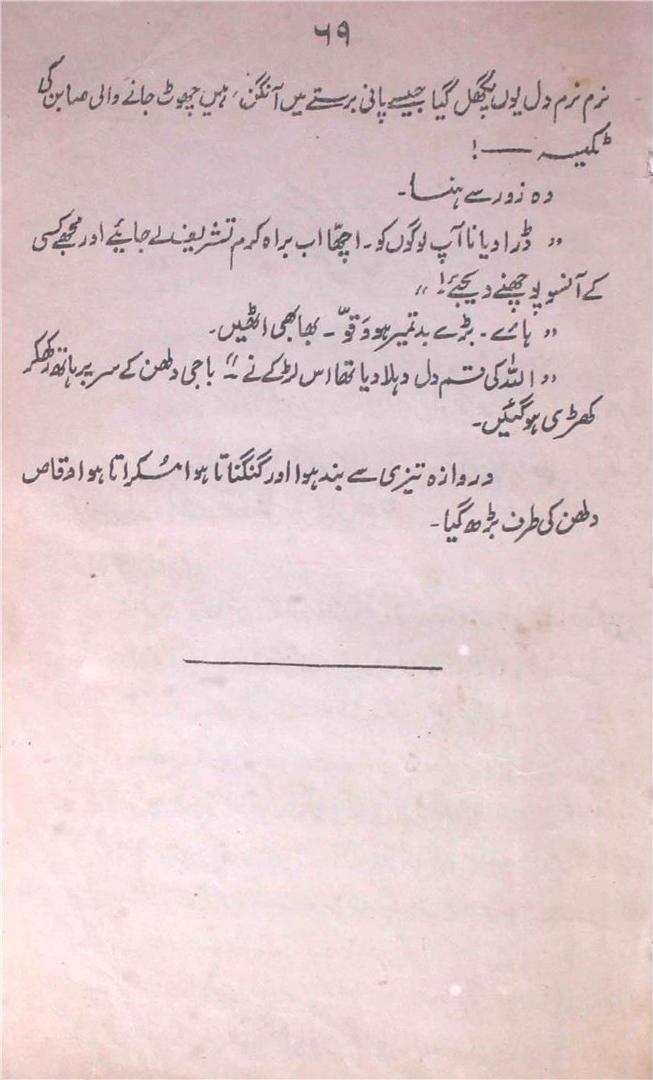 ۶۹
نرم نرم دل یوں پگھل گیا جیسے پانی برستے میں آنگن میں چھوٹ جانے والی صابن کی
ٹکیہ ——!
وہ زور سے ہنسا۔
”ڈرا دیا نا آپ لوگوں کو۔ اچھّا اب براہ کرم تشریف لے جایئے اور مجھے کسی
کے آنسو پوچھنے دیجئے!“
”ہائے۔ بڑے بدتمیز ہو وَقوّ۔ بھابھی اٹھیں۔
”اللہ کی قسم دل دہلا دیا تھا اس لڑکے نے۔“ باجی دلھن کے سر پر ہاتھ رکھکر
کھڑی ہو گئیں۔
دروازہ تیزی سے بند ہوا اور گنگناتا ہوا مُسکراتا ہوا وقاص
دلھن کی طرف بڑھ گیا۔